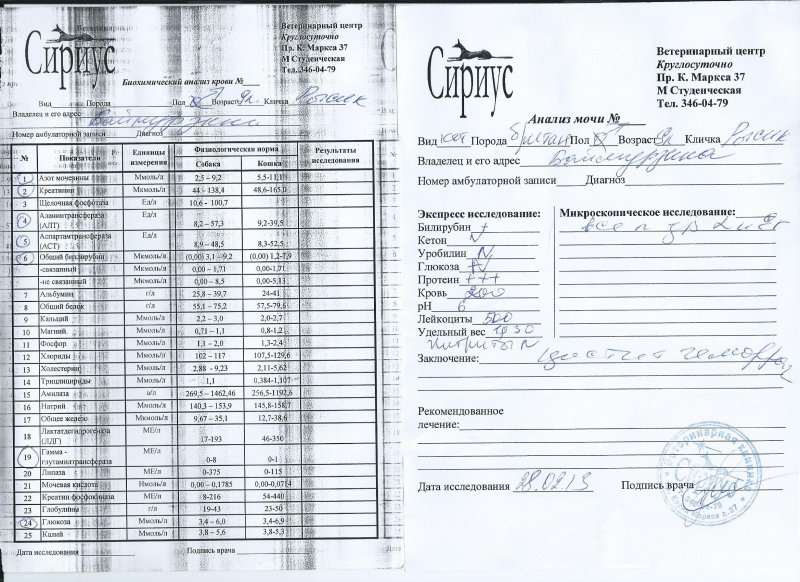 Ветеринарный
Сириус
Ветеринарный центр
Круглосуточно
Пр. К. Маркса 37
М Студенческая
Тел. 346-04-79
Биохимический анализ крови №
Вид Порода Пол Возраст 9л Кличка Рысик
Владелец и его адрес
Номер амбулаторной записи Диагноз
№ Показатели Единицы измерения Физиологическая норма Результаты исследования
Собака Кошка
1 Азот мочевины Ммоль/л 2,5 – 9,2 5,5-11,1
2 Креатинин Мкмоль/л 44 – 138,4 48,6-165,0
3 Щелочная фосфотаза Ед/л 10,6 - 100,7
4 Аланинтрансфераза (АЛТ) Ед/л 8,2 – 57,3 9,2-39,5
5 Аспартамтрансфераза (АСТ) Ед/л 8,9 – 48,5 8,3-52,5
6 Общий билирубин Мкмоль/л (0,00) 3,1 – 9,2 (0,00) 1,2-7,9
-связанный Мкмоль/л 0,00 – 1,71 0,00-1,71
-не связанный Мкмоль/л 0,00 – 8,5 0,00-5,13
7 Альбумин г/л 25,8 – 39,7 24-41
8 Общий белок г/л 55,1 - 75,2 57,5-79,6
9 Кальций Ммоль/л 2,2 – 3,0 2,0-2,7
10 Магний Ммоль/л 0,71 – 1,1 0,8-1,2
11 Фосфор Ммоль/л 1,1 – 2,0 1,3-2,4
12 Хлориды Ммоль/л 102 – 117 107,5-129,6
13 Холестерин Ммоль/л 2,88 - 9,23 2,11-5,62
14 Триглицириды Ммоль/л 1,1 0,384-1,107
15 Амилаза u/л 269,5 – 1462,46 256,5-1192,6
16 Натрий Ммоль/л 140,3 – 153,9 145,8-158,7
17 Общее железо Мкмоль/л 9,67 – 35,1 12,7-38,6
18 Лактатдегидрогеназа (ЛДГ) МЕ/л 17-193 46-350
19 Гамма - глутамилтрансфераза МЕ/л 0-8 0-1
20 Липаза МЕ/л 0-375 0-115
21 Мочевая кислота Нмоль/л 0,00 – 0,1785 0,00-0,0714
22 Креатин фосфокиназа МЕ/л 8-216 54-440
23 Глобулины г/л 19-43 23-50
24 Глюкоза Ммоль/л 3,4 – 6,0 3,4-6,9
25 Калий Ммоль/л 3,8 – 5,6 3,8-5,3
Дата исследования Подпись врача
Сириус
Ветеринарный центр
Круглосуточно
Пр. К. Маркса 37
М Студенческая
Тел. 346-04-79
Анализ мочи №
Вид кот Порода британ Пол Возраст 9л Кличка Рысик
Владелец и его адрес Баймурзина
Номер амбулаторной записи Диагноз
Экспресс исследование: Микроскопическое исследование:
Билирубин +
Кетон N
Уробилин N
Глюкоза N
Протеин +++
Кровь 200
pH 6
Лейкоциты 500
Удельный вес 1030
Нитриты N
все п зр
Заключение: цистит геморраг
Рекомендованное
лечение:
Дата исследования 28.02.13 Подпись врача
Ветеринарная клиника
346-04-79